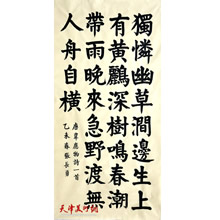 獨憐幽草澗邊生上
有黃鸝深樹鳴春潮
帶雨晚來急野渡無
人舟自橫
唐韋應物詩一首
乙未春張長勇
天津美术网